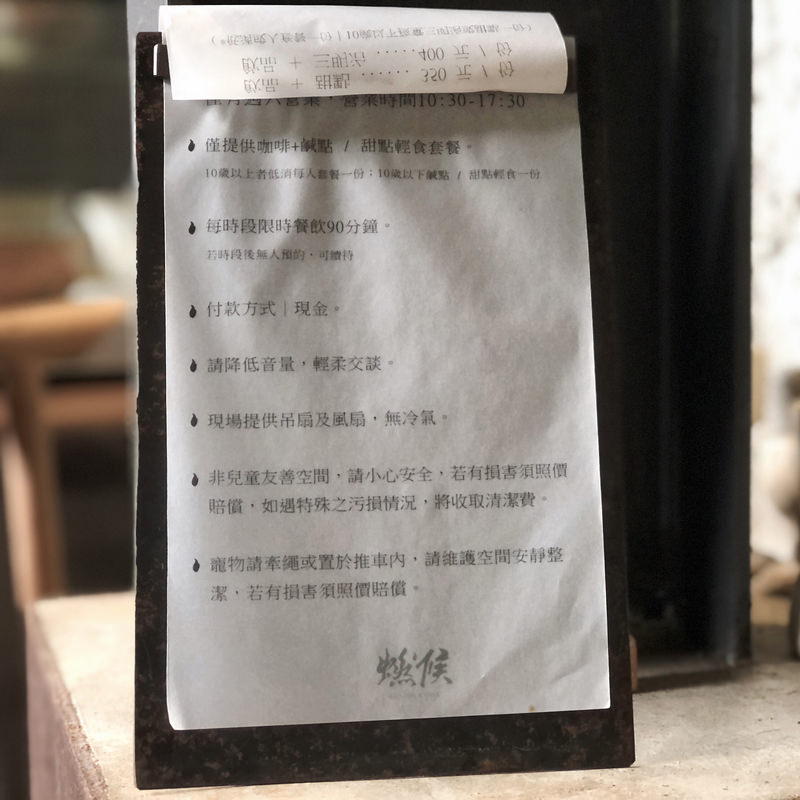 飲品 + 甜點 ······ 350 元 / 份
飲品 + 三明治 ····· 400 元 / 份
週六營業，營業時間10:30-17:30
僅提供咖啡+鹹點 / 甜點輕食套餐。
10歲以上者低消每人套餐一份；10歲以下鹹點 / 甜點輕食一份
每時段限時餐飲90分鐘。
若時段後無人預約，可續待
付款方式｜現金。
請降低音量，輕柔交談。
現場提供吊扇及風扇，無冷氣。
非兒童友善空間，請小心安全，若有損害須照價
賠償，如遇特殊之污損情況，將收取清潔費。
寵物請牽繩或置於推車內，請維護空間安靜整
潔，若有損害須照價賠償。
燃候